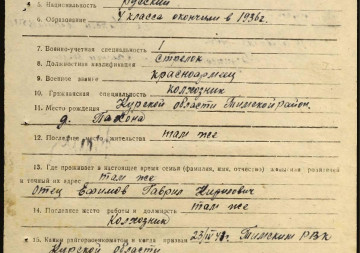 5. Национальность Русский
6. Образование 4 класса окончил в 1936 г.
7. Военно-учетная специальность 1
8. Должностная квалификация стрелок
9. Военное звание красноармеец
10. Гражданская специальность колхозник
11. Место рождения Курской области Тимский район,
д.
12. Последнее место жительства там же
13. Где проживает в настоящее время семья (фамилия, имя, отчество) и точный их адрес там же
Отец Ефимов Гаврил
14. Последнее место работы и должность там же
Колхозник
15. Каким райгорвоенкоматом и когда призван Тимским РВК
Курской области